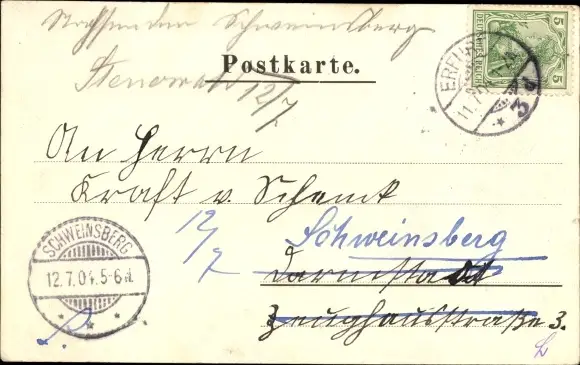 Schweinsberg
Postkarte.
12/7
DEUTSCHES REICH
5 5
ERFURT
11.7.
3
An Herrn
Kraft v. Schenk
12/7
Schweinsberg
Darmstadt
Zeughausstraße 3.
SCHWEINSBERG
12.7.04.5-6N.